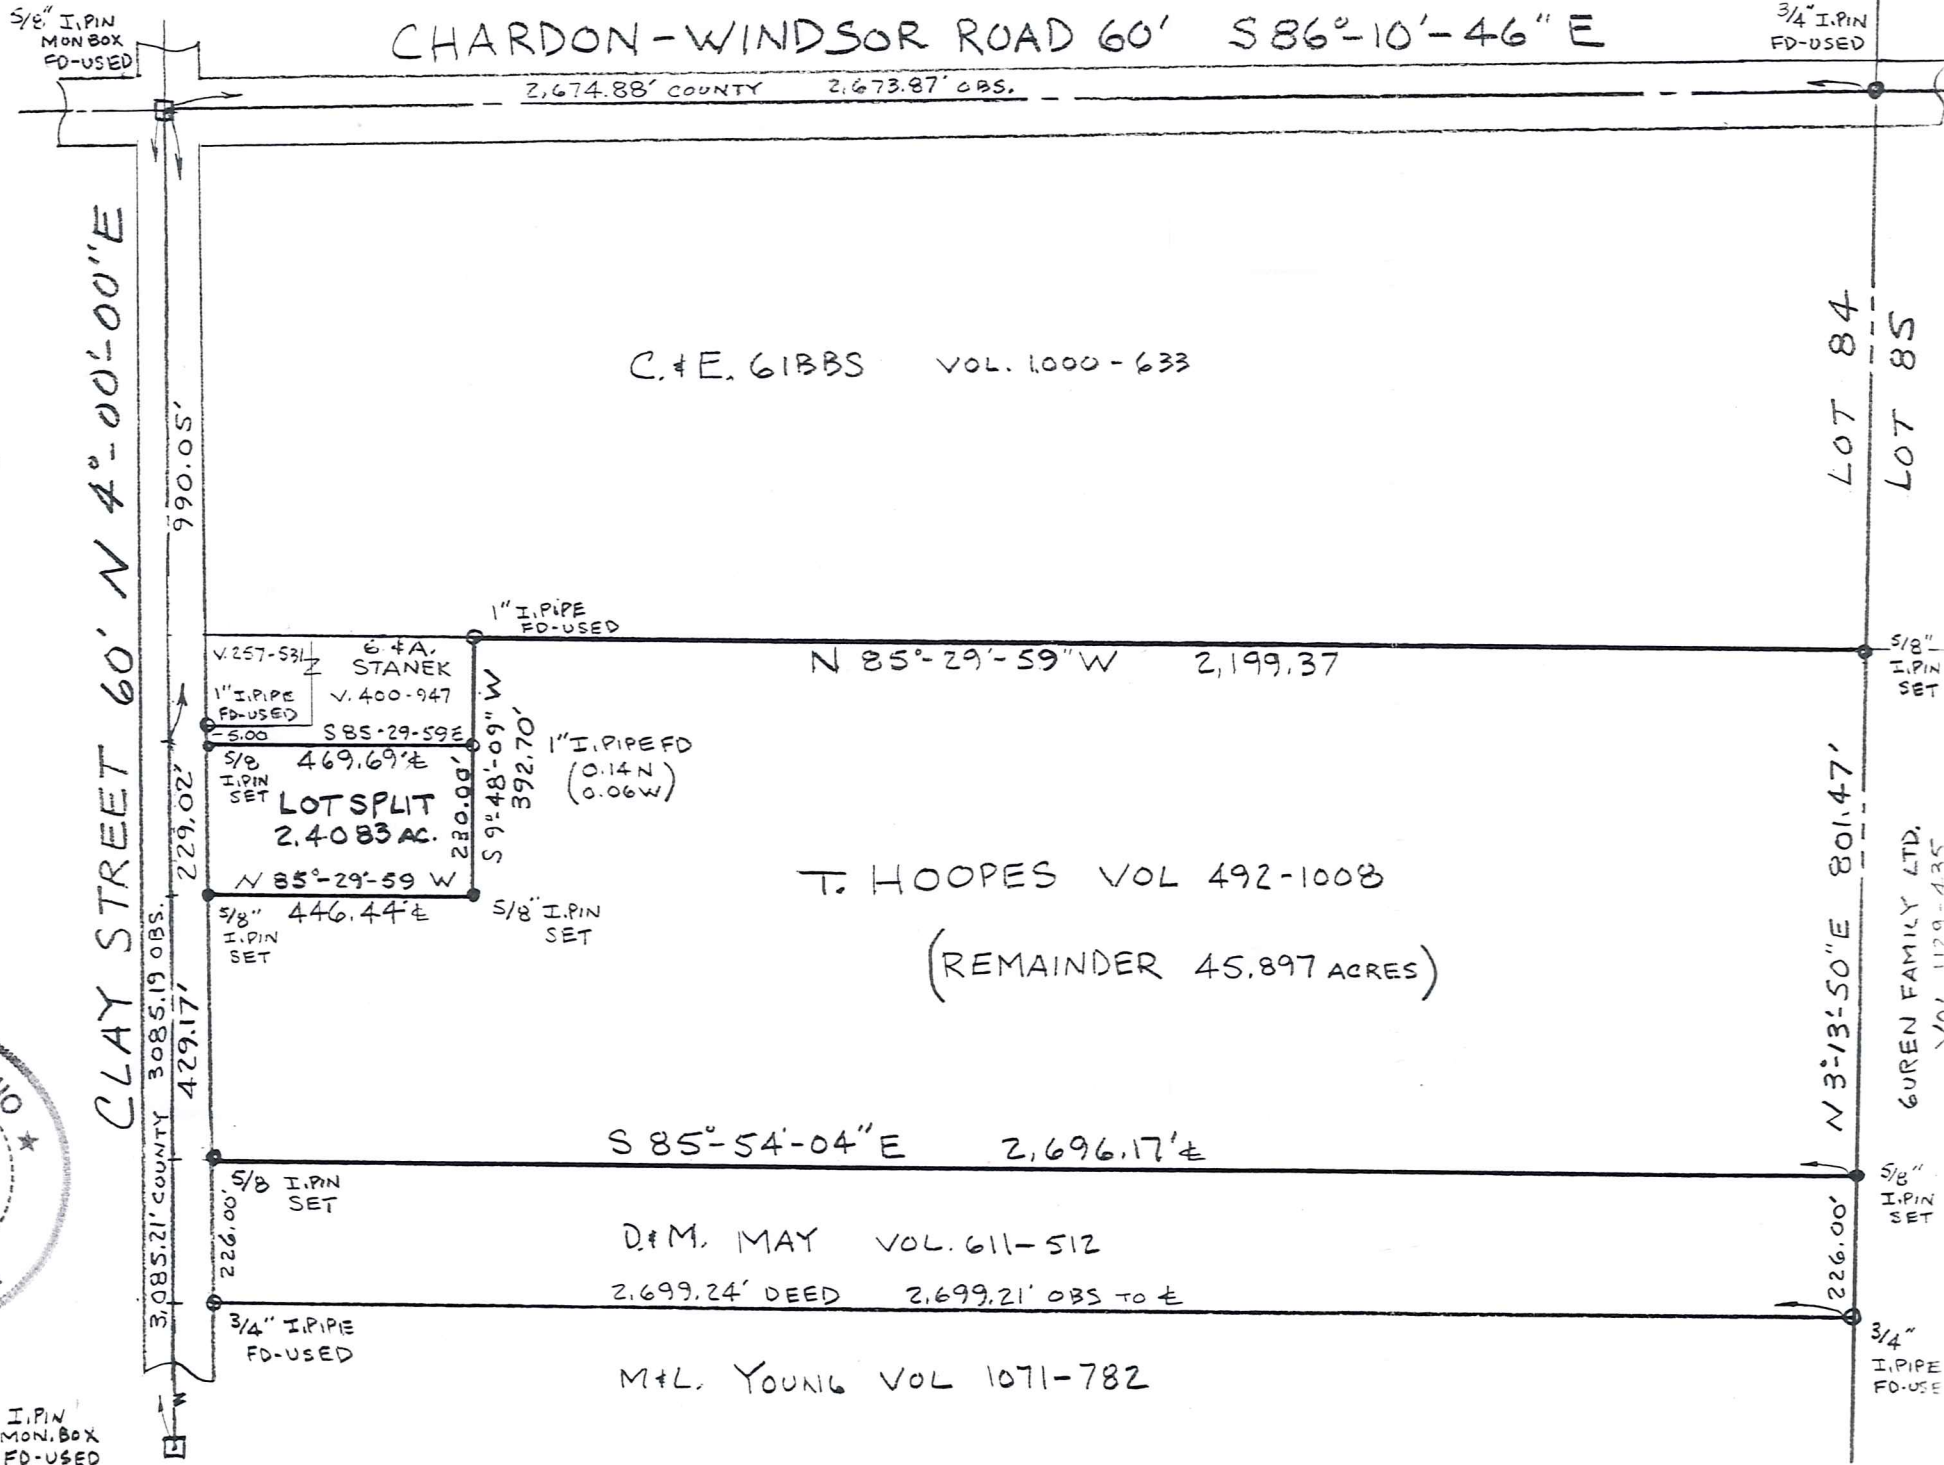 5/8" I.PIN
MON BOX
FD-USED
CHARDON-WINDSOR ROAD 60' S 86°-10'-46" E
3/4" I.PIN
FD-USED
2,674.88' COUNTY 2,673.87' OBS.
CLAY STREET 60' N 4°-00'-00" E
990.05'
C. & E. GIBBS VOL. 1000-633
LOT 84
LOT 85
1" I.PIPE
FD-USED
V.257-531
G. & A.
STANEK
V. 400-947
1" I.PIPE
FD-USED
N 85°-29'-59" W 2,199.37
5/8"
I.PIN
SET
5.00
S 85-29-59 E
469.69' ℄
5/8
I.PIN
SET
LOT SPLIT
2.4083 AC.
230.00'
S 9°-48'-09" W
392.70'
1" I.PIPE FD
(0.14 N
0.06 W)
229.02'
N 85°-29'-59 W
446.44' ℄
5/8"
I.PIN
SET
5/8" I.PIN
SET
T. HOOPES VOL 492-1008
(REMAINDER 45.897 ACRES)
N 3°-13'-50" E 801.47'
GUREN FAMILY LTD.
VOL 1129-435
3,085.21' COUNTY 3085.19 OBS.
429.17'
S 85°-54'-04" E 2,696.17' ℄
5/8 I.PIN
SET
5/8"
I.PIN
SET
226.00'
D. & M. MAY VOL. 611-512
226.00'
2,699.24' DEED 2,699.21' OBS TO ℄
3/4" I.PIPE
FD-USED
3/4"
I.PIPE
FD-USE
M & L. YOUNG VOL 1071-782
I.PIN
MON. BOX
FD-USED